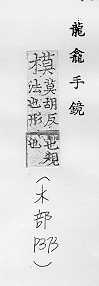 龍龕手鏡
模
莫胡反
法也形
也規
也
（木部P373）